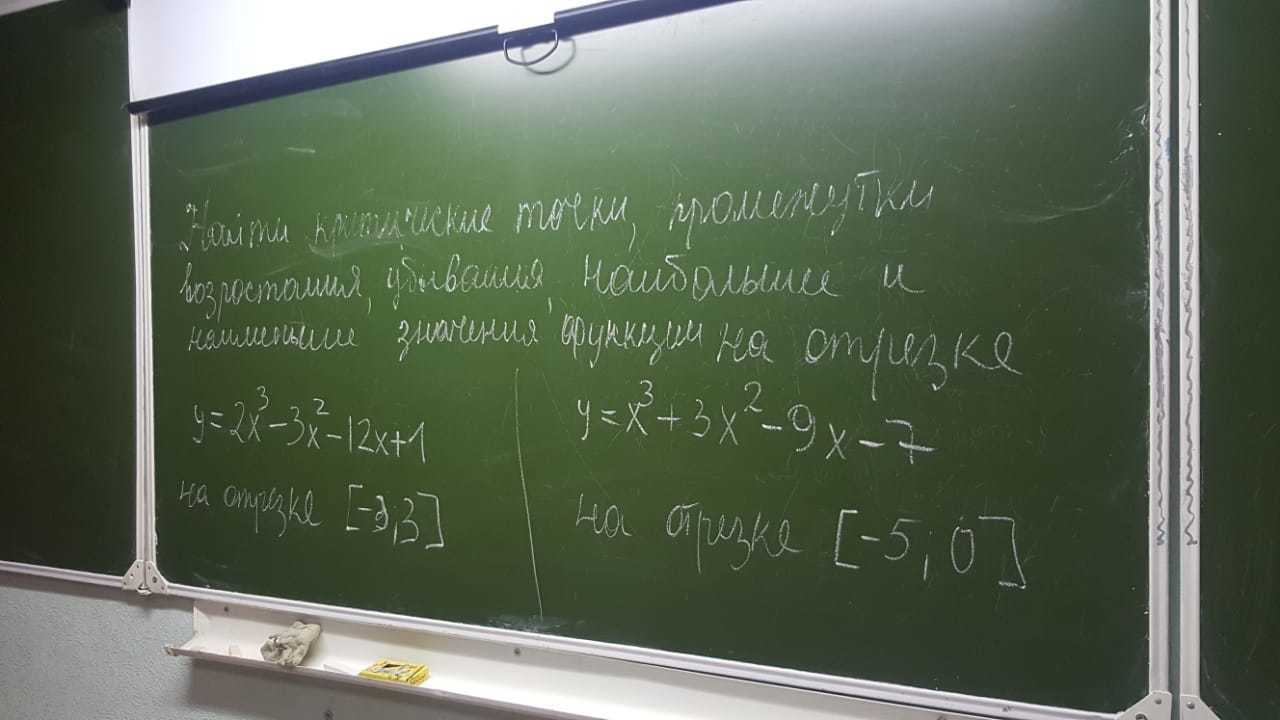 Найти критические точки, промежутки
возростания, убывания, наибольшие и
наименьшие значения функции на отрезке
y=2x³-3x²-12x+1
на отрезке [-3;3]
y=x³+3x²-9x-7
на отрезке [-5;0]